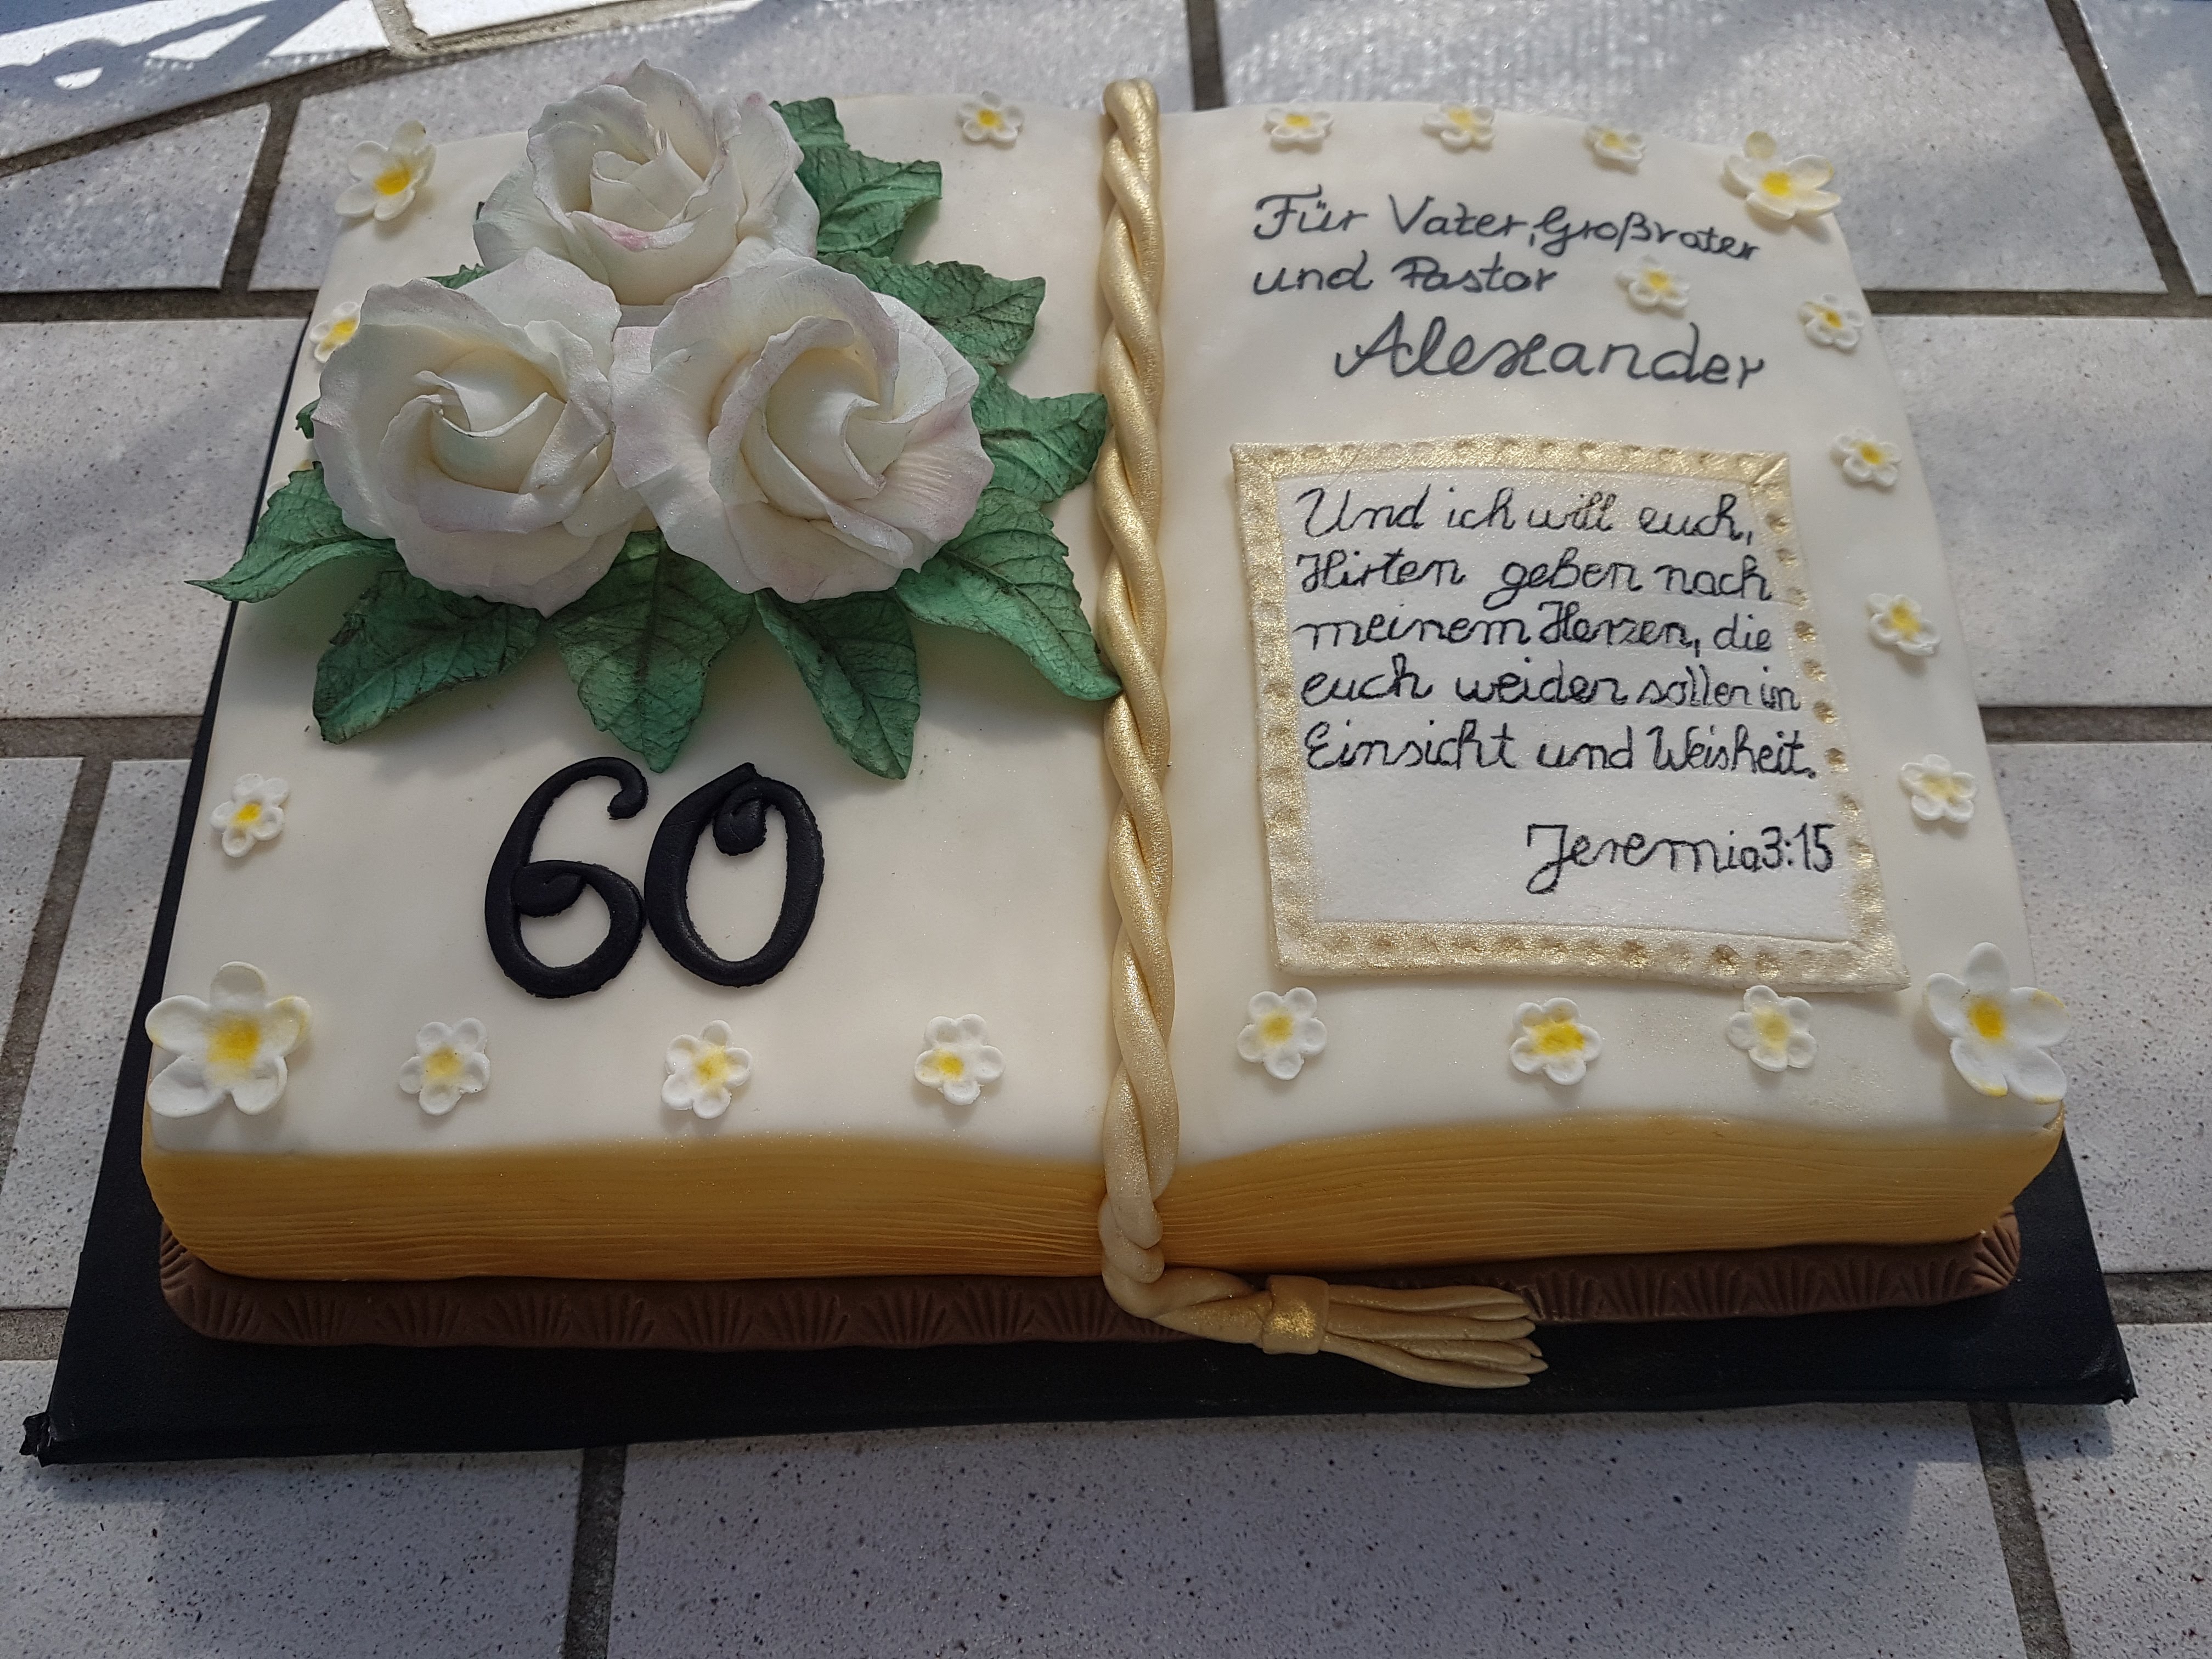 60
Für Vater, Großvater
und Pastor
Alexander
Und ich will euch,
Hirten geben nach
meinem Herzen, die
euch weiden sollen in
Einsicht und Weisheit.
Jeremia 3:15